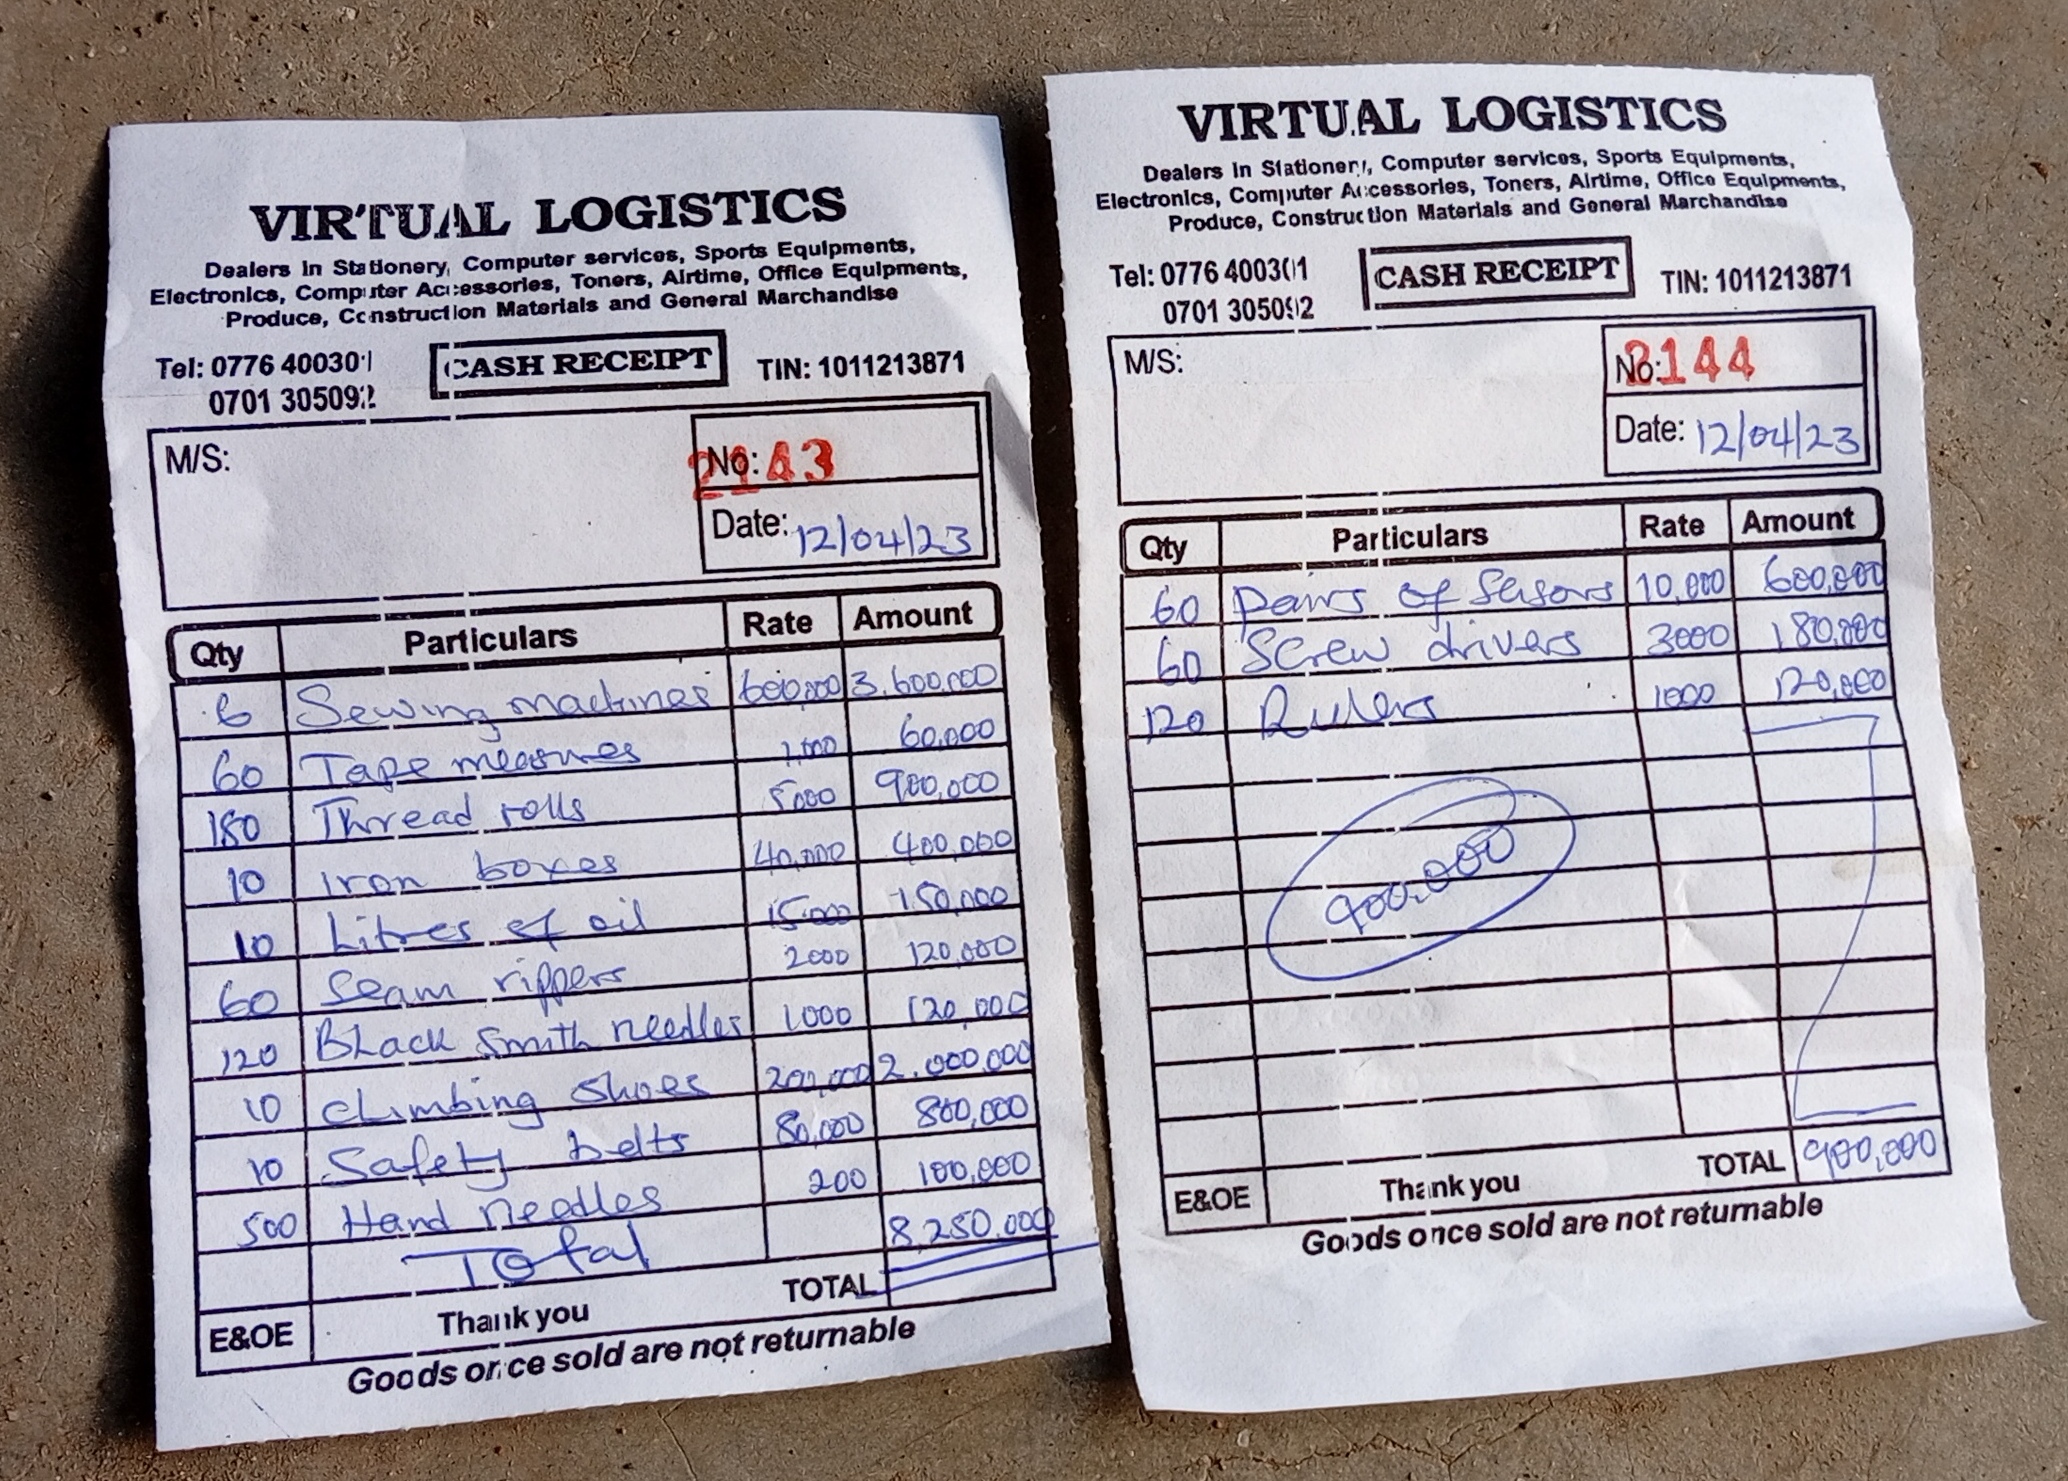 VIRTUAL LOGISTICS
Dealers In Stationery, Computer services, Sports Equipments,
Electronics, Computer Accessories, Toners, Airtime, Office Equipments,
Produce, Construction Materials and General Marchandise
Tel: 0776 400301 CASH RECEIPT TIN: 1011213871
0701 305092
M/S:
No: 2143
Date: 12/04/23
Qty Particulars Rate Amount
6 Sewing machines 600,000 3,600,000
60 Tape measures 1,000 60,000
180 Thread rolls 5000 900,000
10 Iron boxes 40,000 400,000
10 Litres of oil 15000 150,000
60 Seam rippers 2000 120,000
120 Black Smith needles 1000 120,000
10 Climbing Shoes 200,000 2,000,000
10 Safety belts 80,000 800,000
500 Hand needles 200 100,000
Total 8,250,000
TOTAL
E&OE Thank you
Goods once sold are not returnable
VIRTUAL LOGISTICS
Dealers In Stationery, Computer services, Sports Equipments,
Electronics, Computer Accessories, Toners, Airtime, Office Equipments,
Produce, Construction Materials and General Marchandise
Tel: 0776 400301 CASH RECEIPT TIN: 1011213871
0701 305092
M/S:
No: 2144
Date: 12/04/23
Qty Particulars Rate Amount
60 pairs of Seasors 10,000 600,000
60 Screw drivers 3000 180,000
120 Rulers 1000 120,000
900,000
TOTAL 900,000
E&OE Thank you
Goods once sold are not returnable